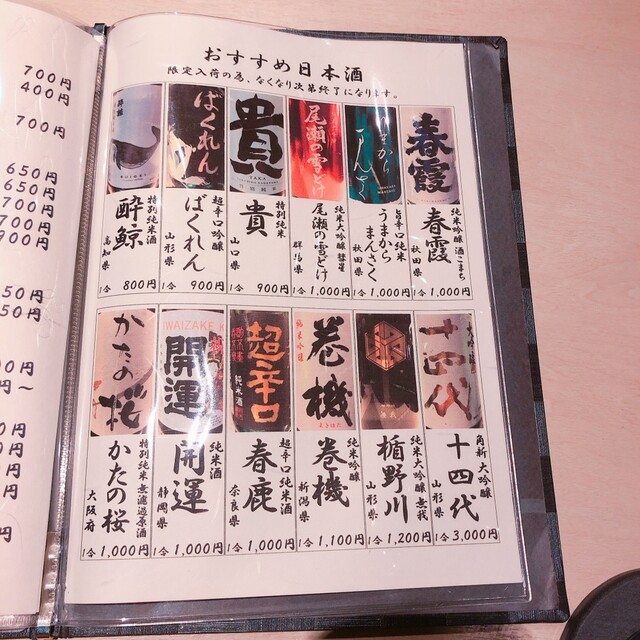 おすすめ日本酒
限定入荷の為、なくなり次第終了になります。
酔鯨
SUIGEI
ばくれん
貴
TAKA
特別純米
尾瀬の雪どけ
うまから
まんさく
春霞
特別純米酒
酔鯨
高知県
1合 800円
超辛口吟醸
ばくれん
山形県
1合 900円
特別純米
貴
山口県
1合 900円
純米大吟醸 彗星
尾瀬の雪どけ
群馬県
1合 1,000円
旨辛口純米
うまから
まんさく
秋田県
1合 1,000円
純米吟醸 酒こまち
春霞
秋田県
1合 1,000円
かたの桜
WAIZAKE K
開運
超辛口
純米酒
純米吟醸
巻機
十四代
特別純米 無濾過原酒
かたの桜
大阪府
1合 1,000円
純米酒
開運
静岡県
1合 1,000円
超辛口純米酒
春鹿
奈良県
1合 1,000円
純米吟醸
巻機
新潟県
1合 1,100円
純米大吟醸 無我
楯野川
山形県
1合 1,200円
角新 大吟醸
十四代
山形県
1合 3,000円
700円
400円
700円
650円
650円
700円
700円
900円
50円
50円
00円
円～
0円
0円
0円
0円
0円